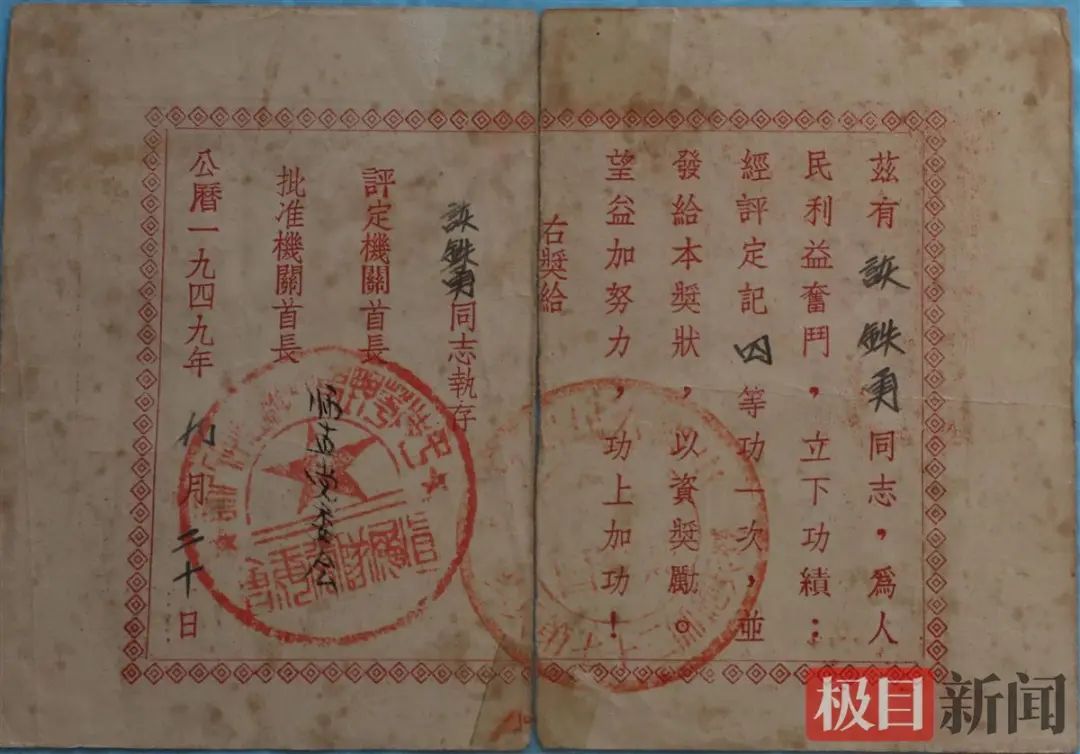 茲有談鉄勇同志，爲人
民利益奮鬥，立下功績；
經評定記四等功一次，並
發給本獎狀，以資獎勵。
望益加努力，功上加功！
右獎給
談鉄勇同志執存
評定機關首長
批准機關首長
公曆一九四九年九月二十日
极目新闻